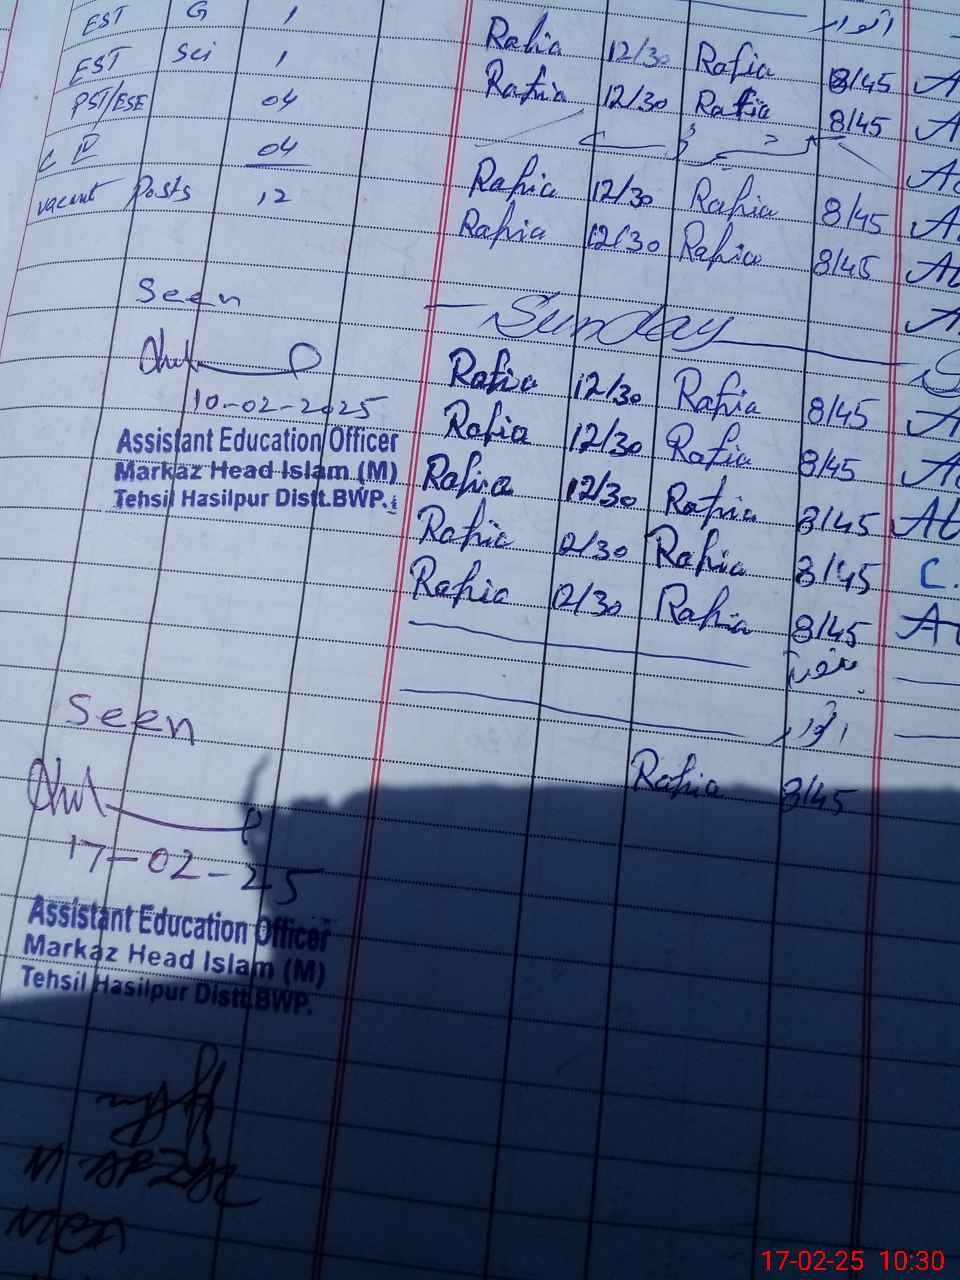 EST G 1
EST Sci 1
PST/ESE 04
C IV 04
vacant Posts 12
Seen
10-02-2025
Assistant Education Officer
Markaz Head Islam (M)
Tehsil Hasilpur Distt.BWP.
Seen
17-02-25
Assistant Education Officer
Markaz Head Islam (M)
Tehsil Hasilpur Distt.BWP.
اتوار
Rafia 12/30 Rafia 8/45
Rafia 12/30 Rafia 8/45
Rafia 12/30 Rafia 8/45
Rafia 12/30 Rafia 8/45
Sunday
Rafia 12/30 Rafia 8/45
Rafia 12/30 Rafia 8/45
Rafia 12/30 Rafia 8/45
Rafia 12/30 Rafia 8/45
Rafia 12/30 Rafia 8/45
اتوار
Rafia 8/45
17-02-25 10:30